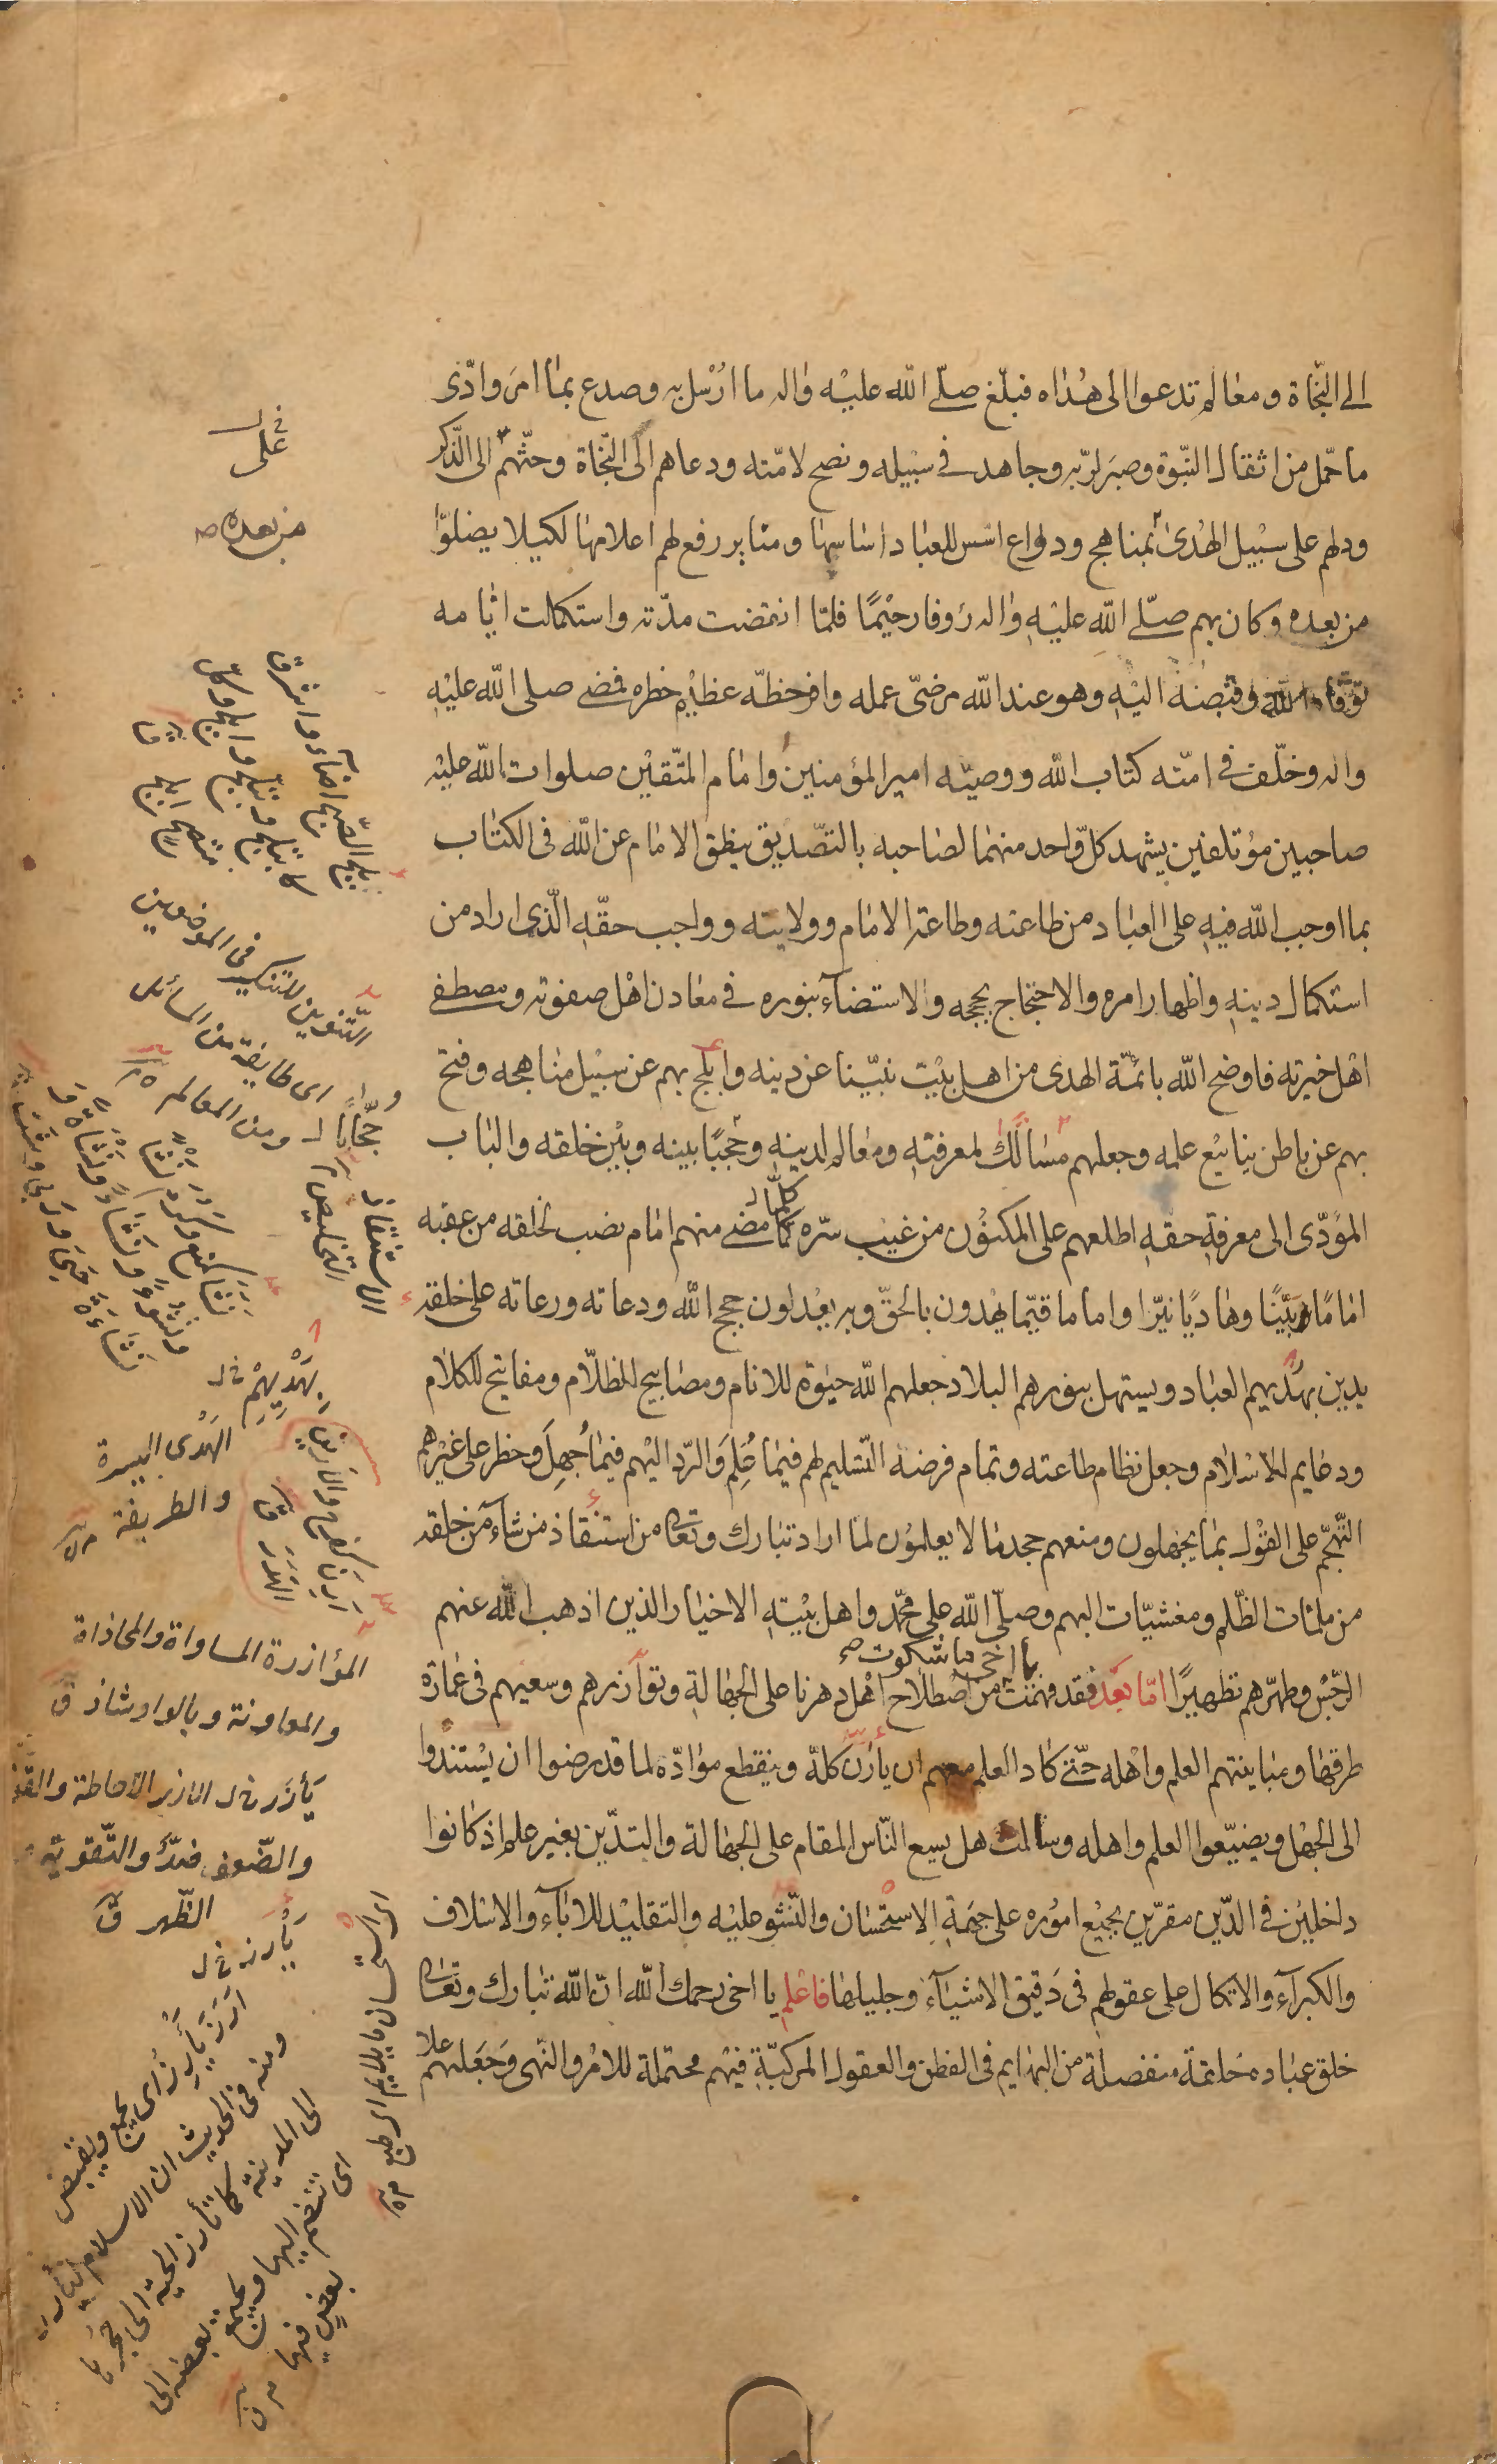 الى النّجاة ومعالم تدعوا الى هُداه فبلّغ صلّى الله عليْه واله ما ارُسْل به وصدع بما امَر وادّى
ما حمّل من اثقال النّبوة وصبَر لربّه وجاهد فى سبيْله ونصح لامّته ودعاهم الى النّجاة وحثّهم الى الذّكر
ودلهم على سبيْل الهُدىٰ بمناهج ودواع اسّس للعباد اساسها ومنابر رفع لهم اعلامها لكيلا يضلّوا
من بعده وكان بهم صلّى الله عليْهِ واله رؤفا رحيْمًا فلمّا انقضت مدّته واستكملت ايّامه
توَفّاه الله وقبضهُ اليْهِ وهو عند الله مرضىّ عمله وافر حظّه عظيْم خطره فمضى صلى الله عليْهِ
واله وخلّف فى امّته كتاب الله ووصيّه امير المؤمنينَ وامام المتّقيْن صلوات الله عليْه
صاحبين مؤتلفين يشهد كلّ واحد منهما لصاحبه بالتصّديق ينطق الامام عن الله فى الكتاب
بما اوجب الله فيهِ على العباد من طاعته وطاعة الامام وولايته وواجب حقّهِ الّذى اراد من
استكمال دينهِ واظهار امره والاحتجاج بحججه والاستضآء بنوره فى معادن اهْل صفوته ومصطفى
اهْل خيرته فاوضح الله بائمّة الهدى من اهل بيْت نبيّنا عن دينه وابْلج بهم عن سبيْل مناهجه وفتح
بهم عن باطن ينابيْع علمه وجعلهم مسالك لمعرفتهِ ومعالم لدينهِ وحجّابًا بينه وبيْن خلقه والباب
المؤدّى الى معرفةِ حقّهِ اطلعهم على المكنوُن من غيْب سرّه كلّما مضى منهم امام نصب لخلقه من عقبه
امامًا بيّنًا وهاديًا نيّرًا واماما قيّما يهْدون بالحقّ وبه يعْدلون حجج الله ودعاته ورعاته على خلقه
يدين بهدُيهم العباد ويستهل بنورهم البلاد جعلهم الله حيٰوة للانام ومصابيح للظلّام ومفاتيح للكلام
ودعايم للاسْلام وجعل نظام طاعته وتمام فرضهِ التسْليم لهم فيْما عُلِمَ والرّد اليْهم فيْما جُهِلَ وحظر على غيْرهم
التّهجّم على القوْل بما يجْهلون ومنعهم جحد ما لا يعلموُن لما اراد تبارك وتعالى من استنْقاذ من شآء من خلقه
من ملمّات الظّلم ومغشيّات البهم وصلّى الله على محمّد واهل بيْتهِ الاخيار الذين اذهب الله عنهم
الرّجْس وطهّرهم تطهيرًا امّا بعْد فقد فهمْت يا اخى ما شكوت من اصْطلاح اهْل دهرنا على الجهالةِ وتوآزرهم وسعيهم فى عمارة
طرقها ومباينتهم العلم واهْله حتّى كاد العلم معهم ان يأرز كلّه وينقطع موادّه لما قد رضوا ان يسْتندوا
الى الجهْل ويضيّعوا العلم واهله وسالت هل يسع النّاس المقام على الجهالة والتدّين بغير علم اذ كانوا
داخليْن فى الدّين مقرّين بجميْع اموُره على جهةِ الاستحْسان والنّشو عليْه والتقليْد للاٰبآء والاسْلاف
والكبرآء والاتكال على عقولهم فى دَقيق الاشياء وجليلها فاعْلم يا اخى رحمك الله انّ الله تبارك وتعالى
خلق عباده خلقة منفصلة من البهايم فى الفطن والعقول المركبّةِ فيْهم محتملة للامْر والنهى وجَعَلهم علا
فى
على
من بعده ص
بلج الصّبح اضاء واشرق
متضح ابلج
التّنوين للتنكير فى الموضعين
اى طايفة من المسائل
ومن المعالم
حجّابًا
الاستنقاذ
التخليص
بِهَدْيِهِمْ خ ل
الهَدْى السيرة
والطريقة
المؤازرة المساواة والمحاذاة
والمعاونة وبالواو شاذ ق
يَأزَر خ ل الازر الاحاطة والقوّة
والضّعف ضدٌّ والتّقوية
الظّهر ق
يَأرز خ ل
ارَزَ يأرِز اى يجمع ويقبض
ومنه فى الحديث ان الاسلام ليأرز
الى المدينة كما تأرز الحيّة الى جحرها
اى تنضم اليها ويجتمع بعضه الى
بعض فيها
الاستحسان ما يلايم الطبع